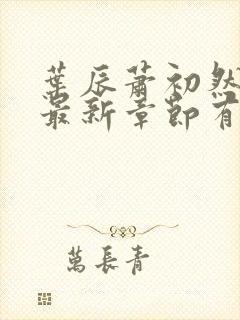 葉辰蕭初然
最新章節有
萬長青